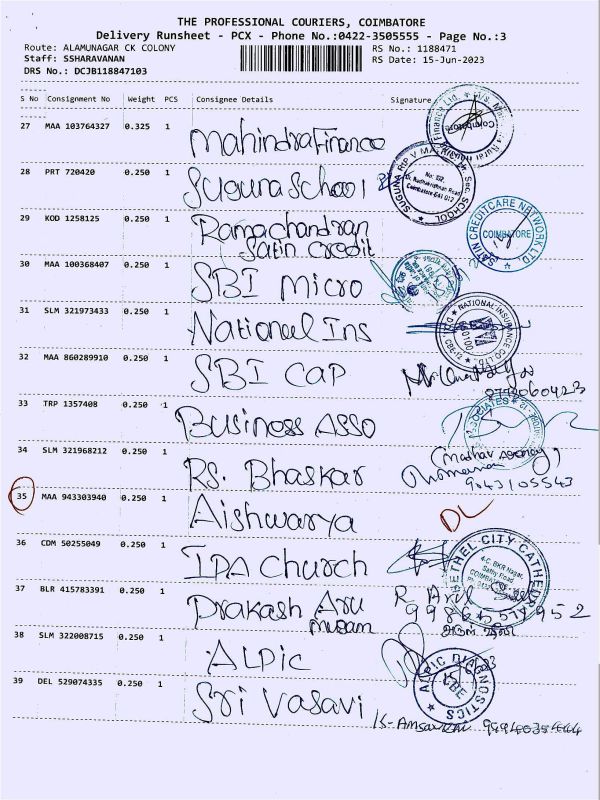 THE PROFESSIONAL COURIERS, COIMBATORE
Delivery Runsheet - PCX - Phone No.:0422-3505555 - Page No.:3
Route: ALAMUNAGAR CK COLONY
RS No.: 1188471
Staff: SSHARAVANAN
RS Date: 15-Jun-2023
DRS No.: DCJB118847103
S No Consignment No Weight PCS Consignee Details Signature
27 MAA 103764327 0.325 1 Mahindra Finance
Coimbatore
28 PRT 720420 0.250 1 Suguna School
SUGUNA RIP V MAT. Hr. Sec. SCHOOL
Coimbatore-641 012
29 KOD 1258125 0.250 1 Ramachandran
Satin Credit
SATIN CREDITCARE NETWORK LTD
COIMBATORE
30 MAA 100368407 0.250 1 SBI Micro
31 SLM 321973433 0.250 1 National Ins
NATIONAL INSURANCE CO. LTD.
CBE-12
32 MAA 860289910 0.250 1 SBI CAP
33 TRP 1357408 0.250 1 Business Asso
34 SLM 321968212 0.250 1 RS. Bhaskar
9043105543
35 MAA 943303940 0.250 1 Aishwarya
DL
36 COM 50255049 0.250 1 IPA Church
BETHEL CITY
37 BLR 415783391 0.250 1 Prakash Aru
mugam
R Arul
38 SLM 322008715 1 ALPIC
ALPIC DIAGNOSTICS
CBE
39 DEL 529074335 0.250 1 Sri Vasavi